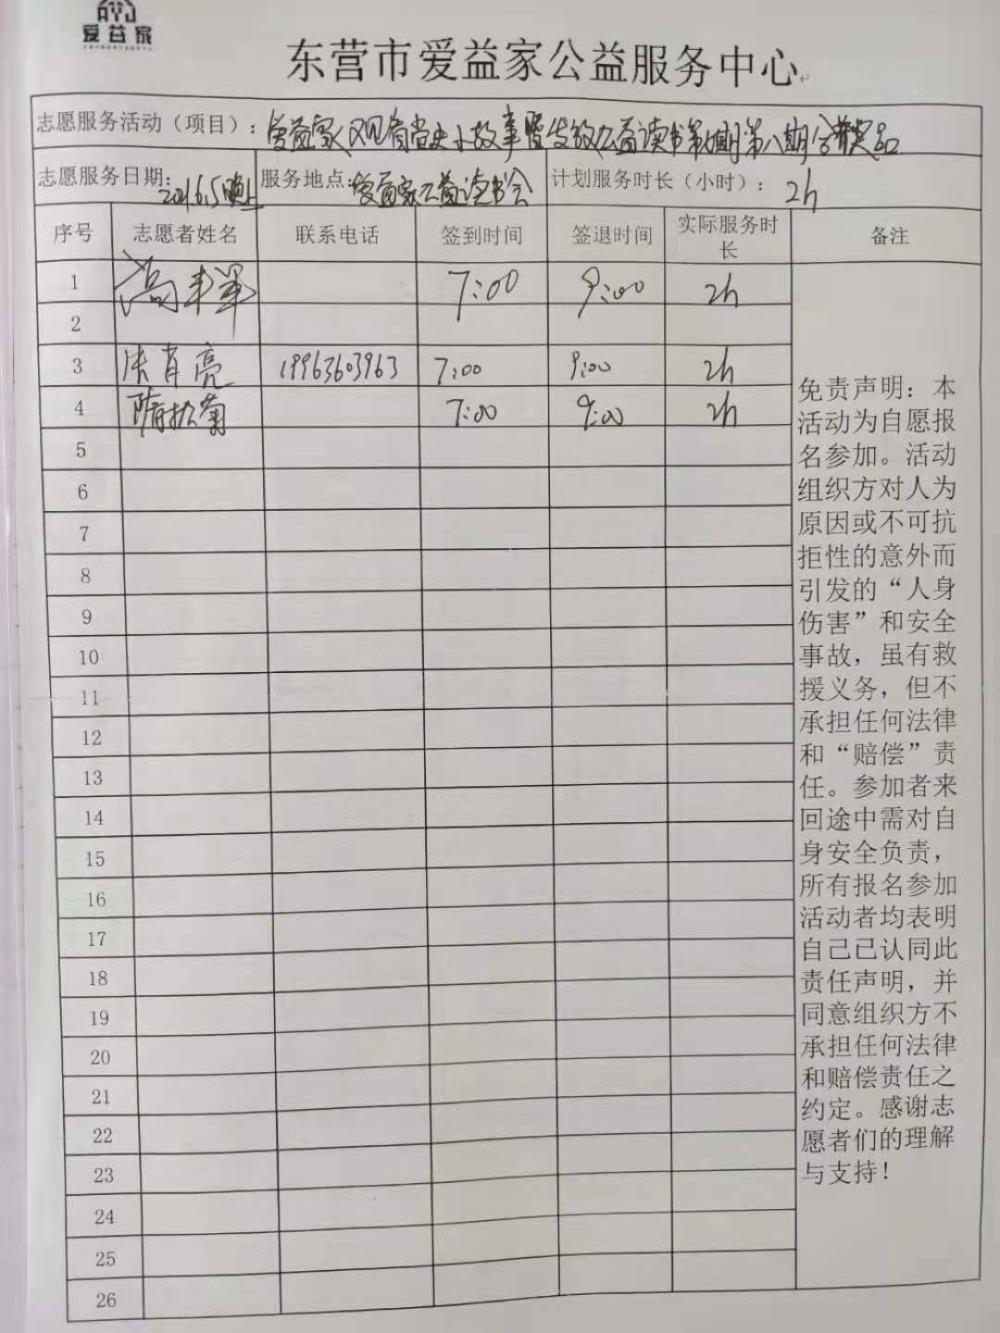 爱益家
东营市爱益家公益服务中心
志愿服务活动（项目）：爱益家人观看党史小故事暨发放公益读书第七期第八期分享奖品
志愿服务日期：2021.6.5晚上 服务地点：爱益家公益读书会 计划服务时长（小时）：2h
序号 志愿者姓名 联系电话 签到时间 签退时间 实际服务时长 备注
1 7:00 9:00 2h
2
3 肖亮 19963603963 7:00 9:00 2h
4 隋 菊 7:00 9:00 2h
5
6
7
8
9
10
11
12
13
14
15
16
17
18
19
20
21
22
23
24
25
26
免责声明：本
活动为自愿报
名参加。活动
组织方对人为
原因或不可抗
拒性的意外而
引发的“人身
伤害”和安全
事故，虽有救
援义务，但不
承担任何法律
和“赔偿”责
任。参加者来
回途中需对自
身安全负责，
所有报名参加
活动者均表明
自己已认同此
责任声明，并
同意组织方不
承担任何法律
和赔偿责任之
约定。感谢志
愿者们的理解
与支持！